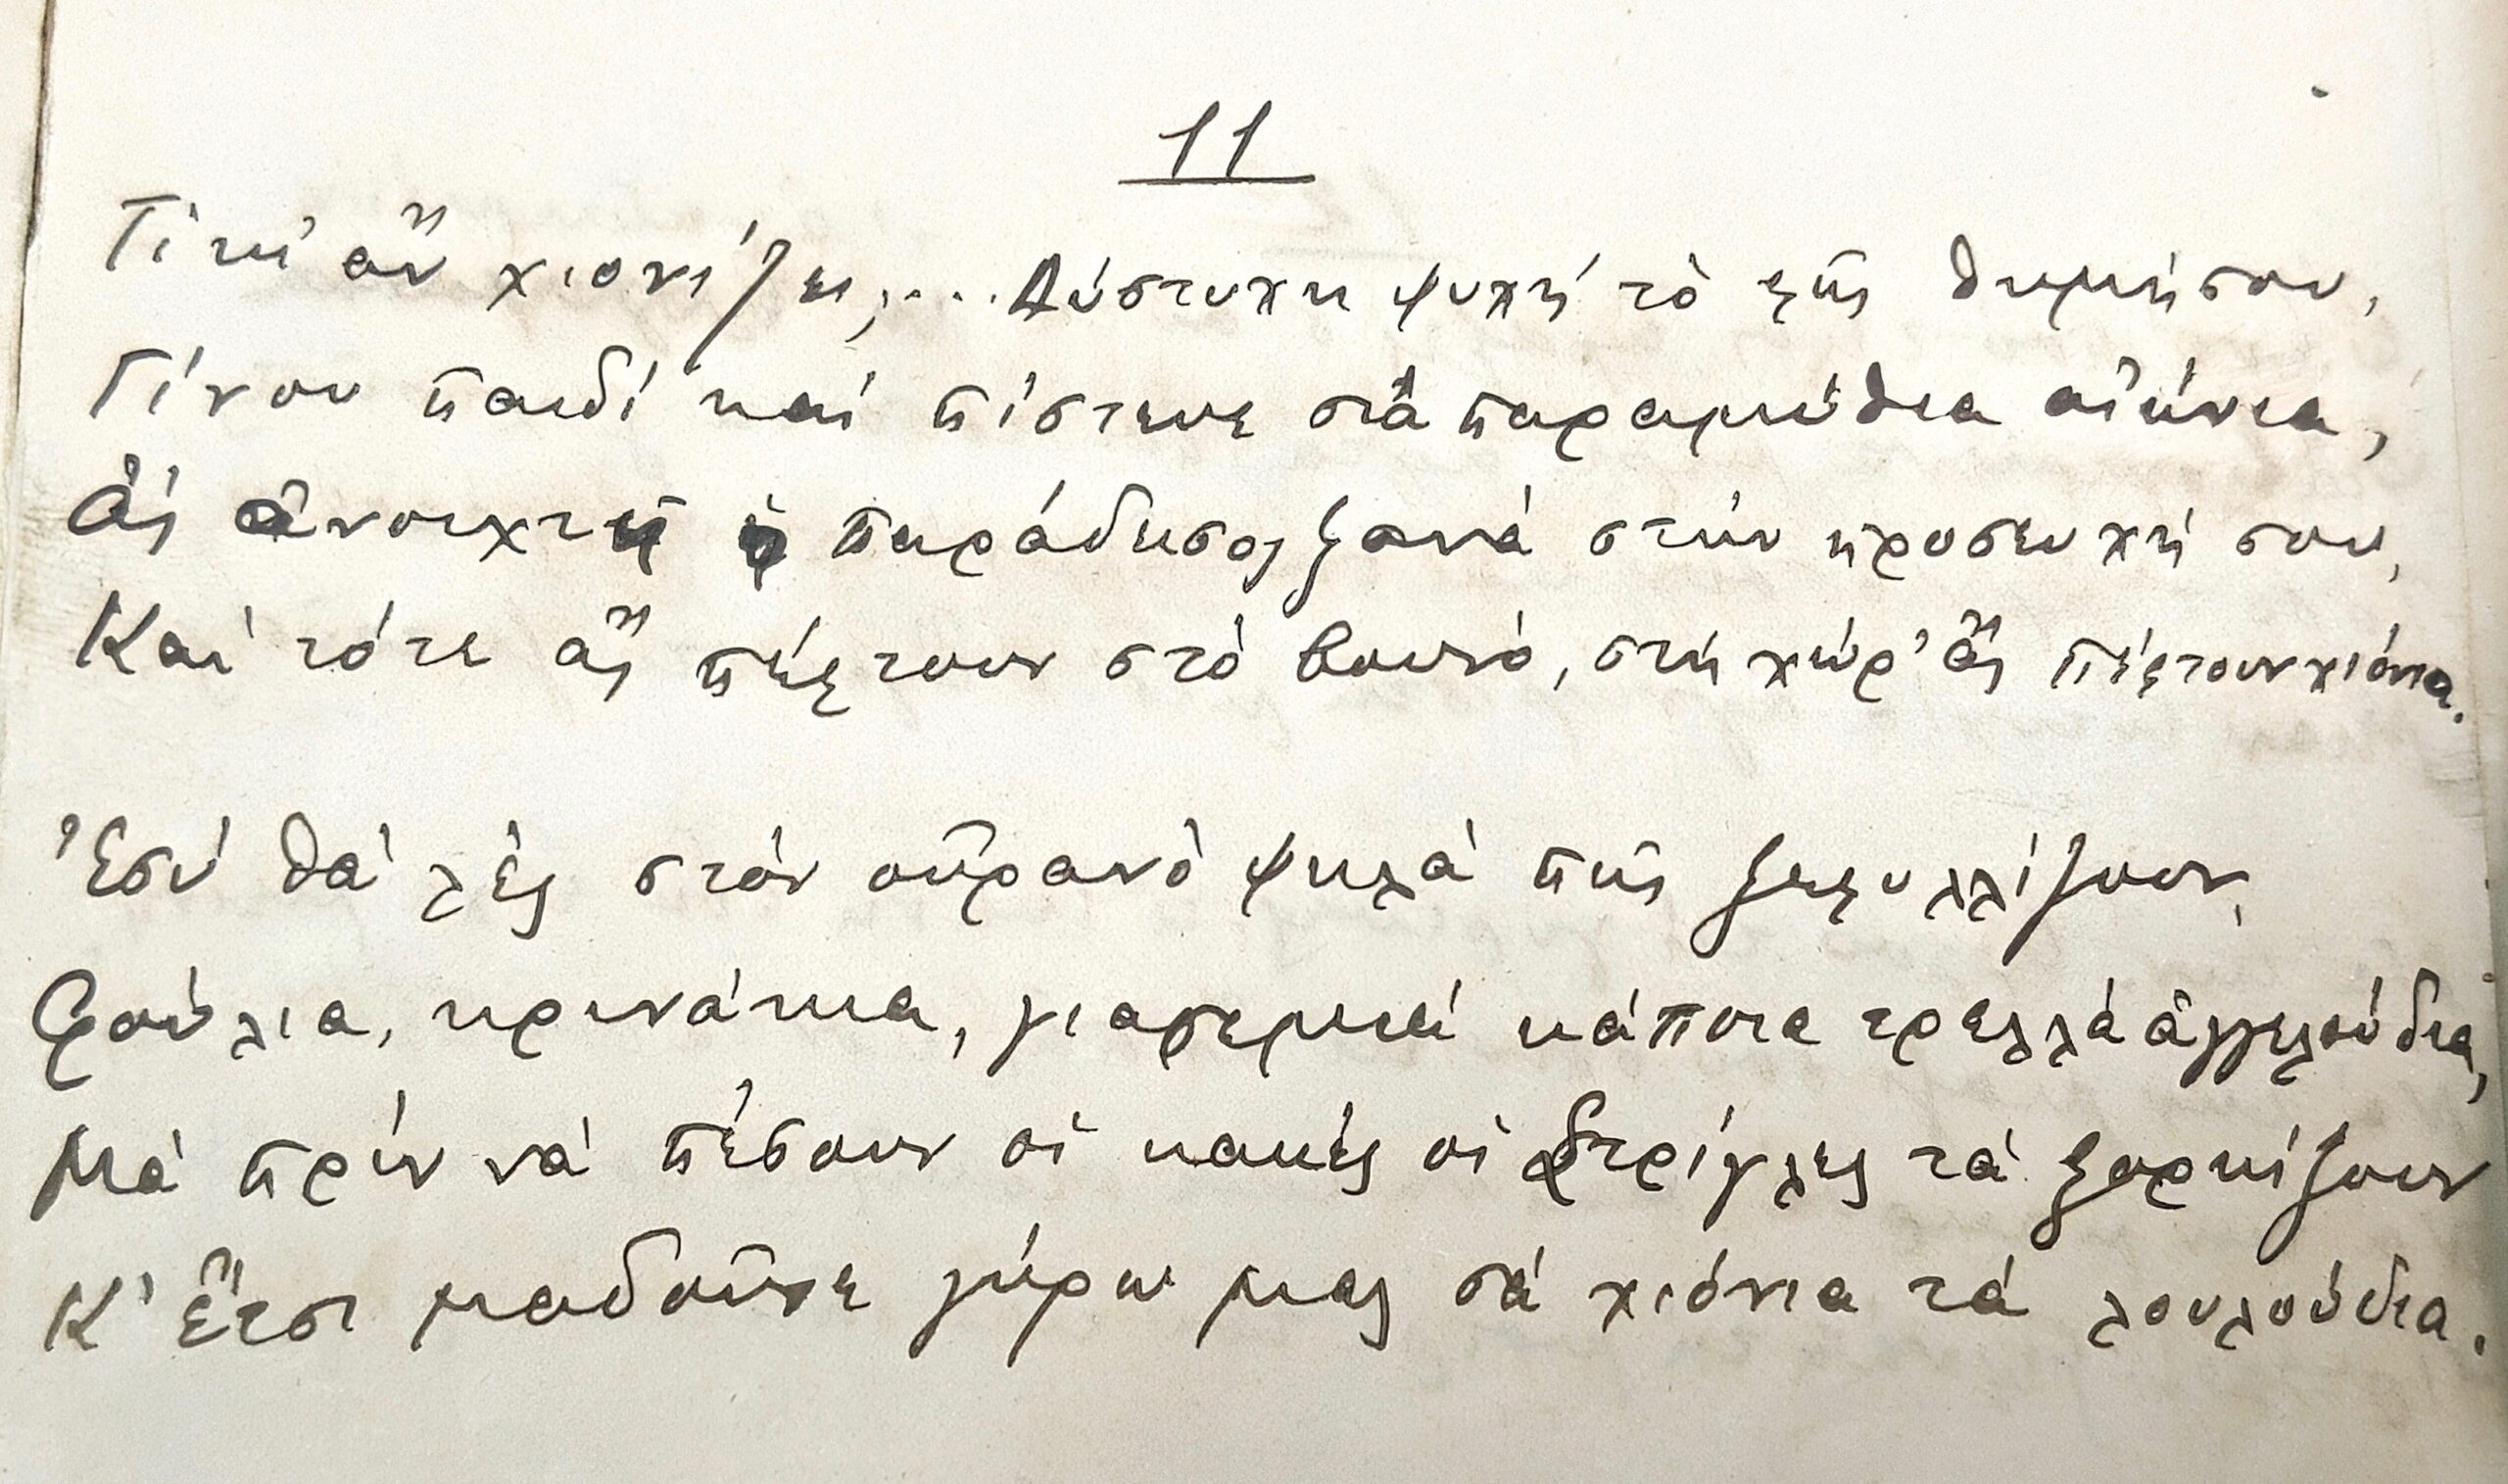 11
Τί κι' ἄν χιονίζει;.... Δύστυχη ψυχή τὸ φῶς θυμήσου,
Γίνου παιδί καί πίστευε στὰ παραμύθια αἰώνια,
Ἄς ἀνοιχτῇ ὁ παράδεισος ξανά στὴν προσευχή σου,
Καί τότε ἄς πέφτουν στὸ βουνὸ, στή χώρ' ἄς πέφτουν χιόνια.
Ἐσύ θά λὲς στὸν οὐρανὸ ψηλά πῶς ξεφυλλίζουν,
Φούλια, κρινάκια, γιασεμιά κάποια τρελλά ἀγγελούδια,
Μὰ πρίν νά πέσουν οἱ κακές οἱ στρίγλες τά ξορκίζουν
Κ' ἔτσι μαδοῦνε γύρω μας σά χιόνια τά λουλούδια.